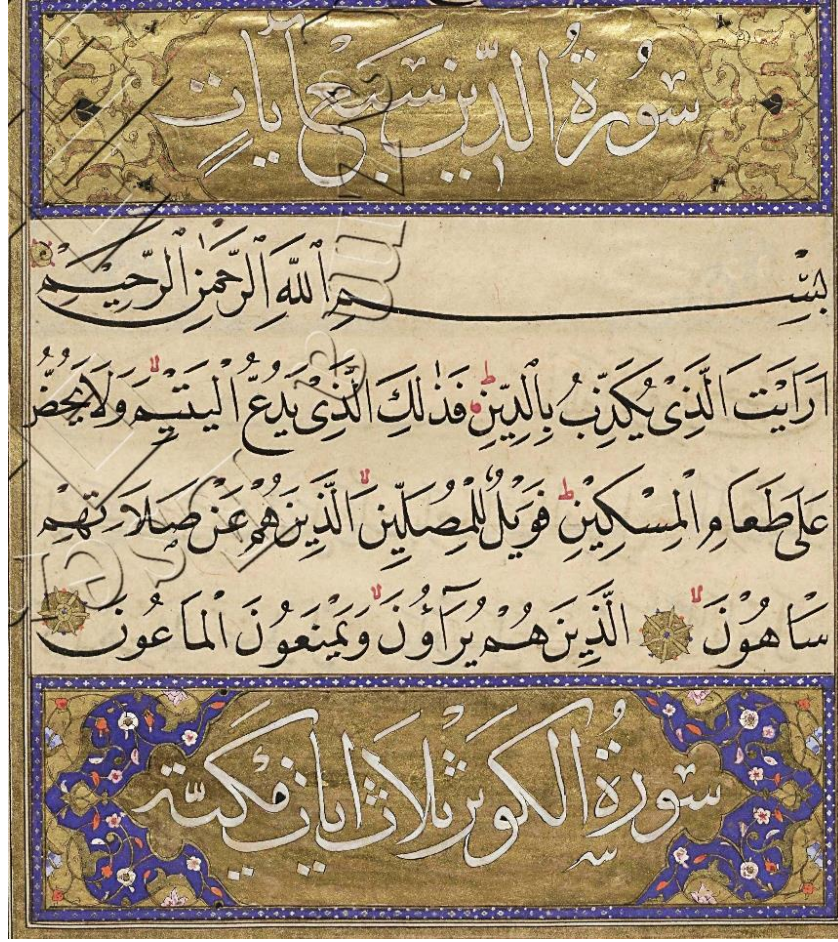 سُورَةُ الدِّينِ سَبْعُ آيَاتٍ
بِسْمِ اللَّهِ الرَّحْمٰنِ الرَّحِيْمِ
اَرَاَيْتَ الَّذِىْ يُكَذِّبُ بِالدِّيْنِ ط فَذٰلِكَ الَّذِىْ يَدُعُّ الْيَتِيْمَ لا وَلَا يَحُضُّ
عَلَى طَعَامِ الْمِسْكِيْنِ ط فَوَيْلٌ لِلْمُصَلِّيْنَ لا الَّذِيْنَ هُمْ عَنْ صَلَاتِهِمْ
سَاهُوْنَ لا الَّذِيْنَ هُمْ يُرَآؤُنَ لا وَيَمْنَعُوْنَ الْمَاعُوْنَ
سُورَةُ الكَوثَرِ ثَلاثُ ايات مَكيّة